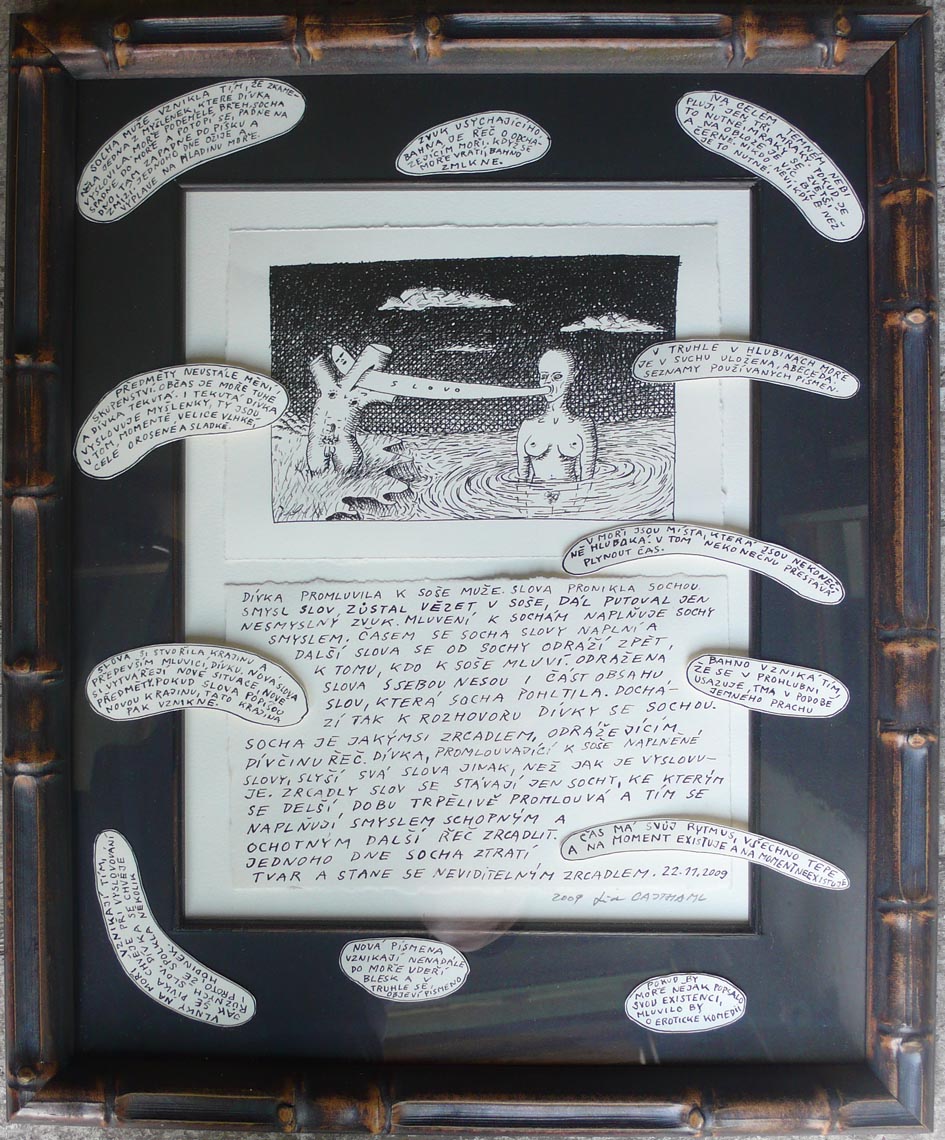 SOCHA MUŽE VZNIKLA TÍM, ŽE ZKAME-
NĚLO 
DO MOŘE A POTOPÍ SE, PADNE NA
DNO. TAM ZAPADNE DO PÍSKU A
JEDNOHO DNE OŽIJE A
VYPLAVE NA HLADINU MOŘE.
ZVUK USYCHAJÍCÍHO
BAHNA JE ŘEČ O ODCHÁ-
ZEJÍCÍM MOŘI. KDYŽ SE
MOŘE VRÁTÍ, BAHNO
ZMLKNE.
NA CELÉM TEMNÉM NEBI
PLUJÍ JEN TŘI MRAKY. POKUD JE
TO NUTNÉ, MRAKY SE ZVĚTŠÍ
A NA OBLOZE JE VÍC BÍLÉ NEŽ
ČERNÉ. NIKDO NEVÍ, KDY
JE TO NUTNÉ.
SLOVO
PŘEDMĚTY NEUSTÁLE MĚNÍ
SKUPENSTVÍ. OBČAS JE MOŘE TUHÉ
A DÍVKA TEKUTÁ. I TEKUTÁ DÍVKA
VYSLOVUJE MYŠLENKY, TY JSOU
V TOM MOMENTĚ VELICE VLHKÉ,
CELÉ OROSENÉ A SLADKÉ.
V TRUHLE V HLUBINÁCH MOŘE
JE V SUCHU ULOŽENA ABECEDA.
SEZNAMY POUŽÍVANÝCH PÍSMEN.
V MOŘI JSOU MÍSTA, KTERÁ JSOU NEKONEČ-
NĚ HLUBOKÁ. V TOM NEKONEČNU PŘESTÁVÁ
PLYNOUT ČAS.
DÍVKA PROMLUVILA K SOŠE MUŽE. SLOVA PRONIKLA SOCHOU
SMYSL SLOV, ZŮSTAL VĚZET V SOŠE, DÁL PUTOVAL JEN
NESMYSLNÝ ZVUK. MLUVENÍ K SOCHÁM NAPLŇUJE SOCHY
SMYSLEM. ČASEM SE SOCHA SLOVY NAPLNÍ A
DALŠÍ SLOVA SE OD SOCHY ODRÁŽÍ ZPĚT,
K TOMU, KDO K SOŠE MLUVÍ. ODRAŽENÁ
SLOVA SSEBOU NESOU I ČÁST OBSAHU
SLOV, KTERÁ SOCHA POHLTILA. DOCHÁ-
ZÍ TAK K ROZHOVORU DÍVKY SE SOCHOU.
SOCHA JE JAKÝMSI ZRCADLEM, ODRÁŽEJÍCÍM
DÍVČINU ŘEČ. DÍVKA, PROMLOUVAJÍCÍ K SOŠE NAPLNĚNÉ
SLOVY, SLYŠÍ SVÁ SLOVA JINAK, NEŽ JAK JE VYSLOVU-
JE. ZRCADLY SLOV SE STÁVAJÍ JEN SOCHY, KE KTERÝM
SE DELŠÍ DOBU TRPĚLIVĚ PROMLOUVÁ A TÍM SE
NAPLŇUJÍ SMYSLEM SCHOPNÝM A
OCHOTNÝM DALŠÍ ŘEČ ZRCADLIT.
JEDNOHO DNE SOCHA ZTRATÍ
TVAR A STANE SE NEVIDITELNÝM ZRCADLEM. 22.11.2009
2009 BAJTHAML
SLOVA SI STVOŘILA KRAJINU A
PŘEDEVŠÍM MLUVÍCÍ DÍVKU. NOVÁ SLOVA
SI VYTVÁŘEJÍ NOVÉ SITUACE, NOVÉ
PŘEDMĚTY. POKUD SLOVA POPÍŠOU
NOVOU KRAJINU, TATO KRAJINA
PAK VZNIKNE.
BAHNO VZNIKÁ TÍM,
ŽE SE V PROHLUBNI
USAZUJE TMA V PODOBĚ
JEMNÉHO PRACHU
ČAS MÁ SVŮJ RYTMUS, VŠECHNO TEPE
A NA MOMENT EXISTUJE A NA MOMENT NEEXISTUJE
VLNKY NA MOŘI VZNIKAJÍ TÍM,
JAK SE DÍVKA CHVĚJE PŘI VYSLOVOVÁNÍ
RŮZNÝCH SLOV. DÍVKA SE CHVĚJE
I PROTO, ŽE SPOLKLA NĚKOLIK
HODINEK.
NOVÁ PÍSMENA
VZNIKAJÍ NENADÁLE
DO MOŘE UDEŘÍ
BLESK A V
TRUHLE SE
OBJEVÍ PÍSMENO
POKUD BY
MOŘE NĚJAK POPSALO
SVOU EXISTENCI,
MLUVILO BY
O EROTICKÉ KOMEDII